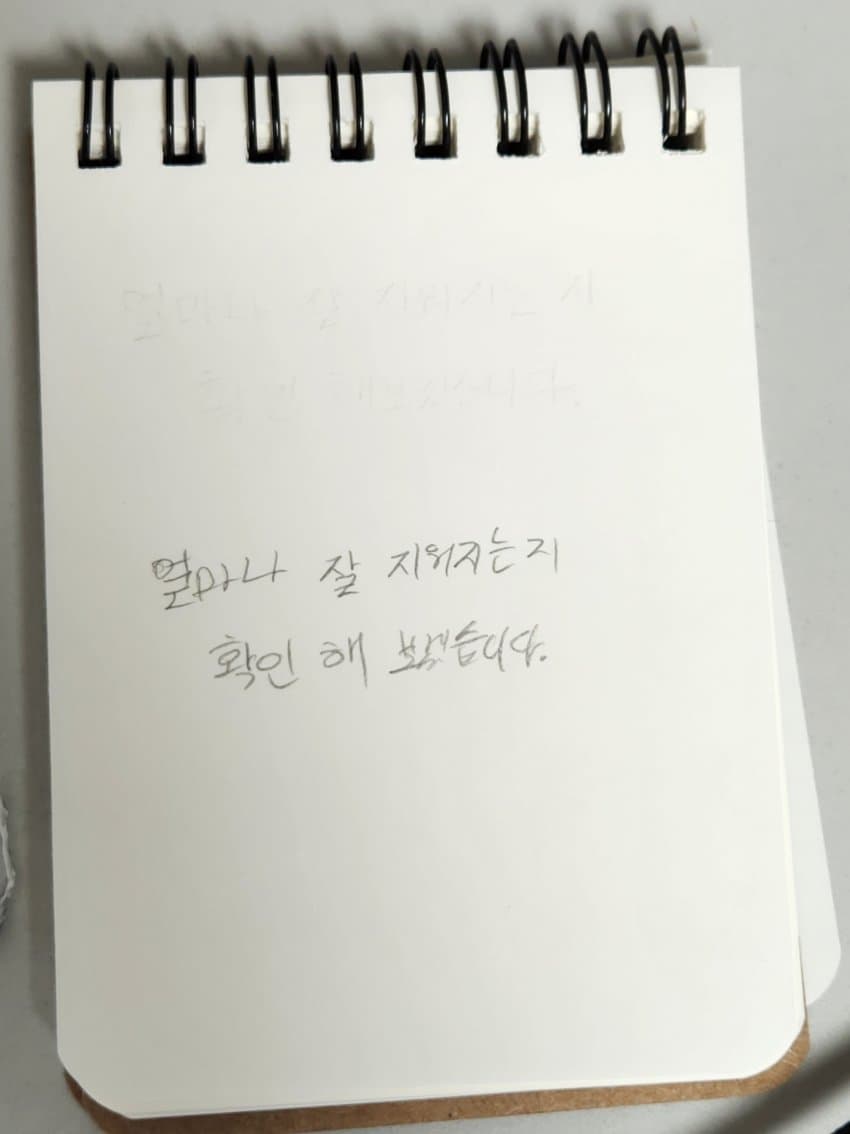 얼마나 잘 지워지는지
확인 해보겠습니다.
얼마나 잘 지워지는지
확인 해 보겠습니다.